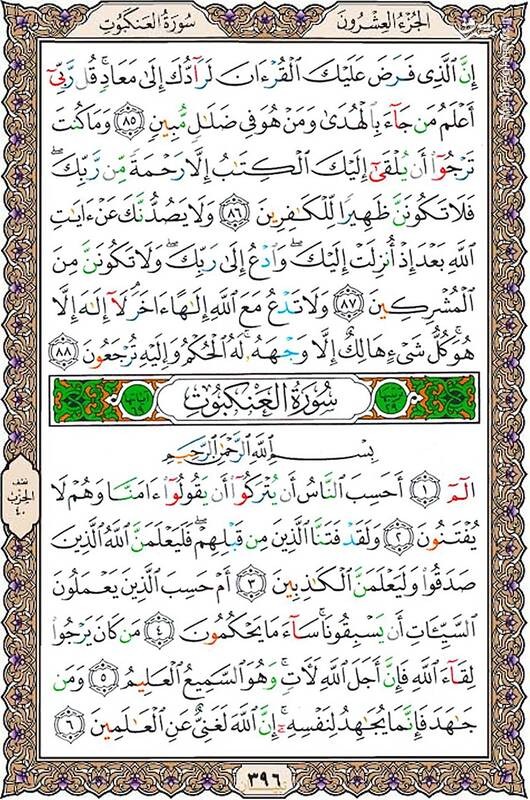 الجُزءُ العِشرُونَ
سُورَةُ العَنكَبُوتِ
إِنَّ الَّذِي فَرَضَ عَلَيْكَ الْقُرْءَانَ لَرَآدُّكَ إِلَىٰ مَعَادٍ ۚ قُل رَّبِّىٓ
أَعْلَمُ مَن جَآءَ بِالْهُدَىٰ وَمَنْ هُوَ فِى ضَلَٰلٍ مُّبِينٍ ٨٥ وَمَا كُنتَ
تَرْجُوٓا۟ أَن يُلْقَىٰٓ إِلَيْكَ الْكِتَٰبُ إِلَّا رَحْمَةً مِّن رَّبِّكَ ۖ
فَلَا تَكُونَنَّ ظَهِيرًا لِّلْكَٰفِرِينَ ٨٦ وَلَا يَصُدُّنَّكَ عَنْ ءَايَٰتِ
اللَّهِ بَعْدَ إِذْ أُنزِلَتْ إِلَيْكَ ۖ وَادْعُ إِلَىٰ رَبِّكَ ۖ وَلَا تَكُونَنَّ مِنَ
الْمُشْرِكِينَ ٨٧ وَلَا تَدْعُ مَعَ اللَّهِ إِلَٰهًا ءَاخَرَ ۘ لَآ إِلَٰهَ إِلَّا
هُوَ ۚ كُلُّ شَىْءٍ هَالِكٌ إِلَّا وَجْهَهُۥ ۚ لَهُ الْحُكْمُ وَإِلَيْهِ تُرْجَعُونَ ٨٨
سُورَةُ العَنكَبُوتِ
بِسْمِ اللَّهِ الرَّحْمَٰنِ الرَّحِيمِ
الٓمٓ ١ أَحَسِبَ النَّاسُ أَن يُتْرَكُوٓا۟ أَن يَقُولُوٓا۟ ءَامَنَّا وَهُمْ لَا
يُفْتَنُونَ ٢ وَلَقَدْ فَتَنَّا الَّذِينَ مِن قَبْلِهِمْ ۖ فَلَيَعْلَمَنَّ اللَّهُ الَّذِينَ
صَدَقُوا۟ وَلَيَعْلَمَنَّ الْكَٰذِبِينَ ٣ أَمْ حَسِبَ الَّذِينَ يَعْمَلُونَ
السَّيِّـَٔاتِ أَن يَسْبِقُونَا ۚ سَآءَ مَا يَحْكُمُونَ ٤ مَن كَانَ يَرْجُوا۟
لِقَآءَ اللَّهِ فَإِنَّ أَجَلَ اللَّهِ لَـَٔاتٍ ۚ وَهُوَ السَّمِيعُ الْعَلِيمُ ٥ وَمَن
جَٰهَدَ فَإِنَّمَا يُجَٰهِدُ لِنَفْسِهِۦٓ ۚ إِنَّ اللَّهَ لَغَنِىٌّ عَنِ الْعَٰلَمِينَ ٦
نصف
الحزب
٤٠
٣٩٦